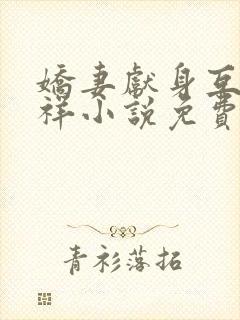 嬌妻獻身互
祥小說免費
青衫落拓